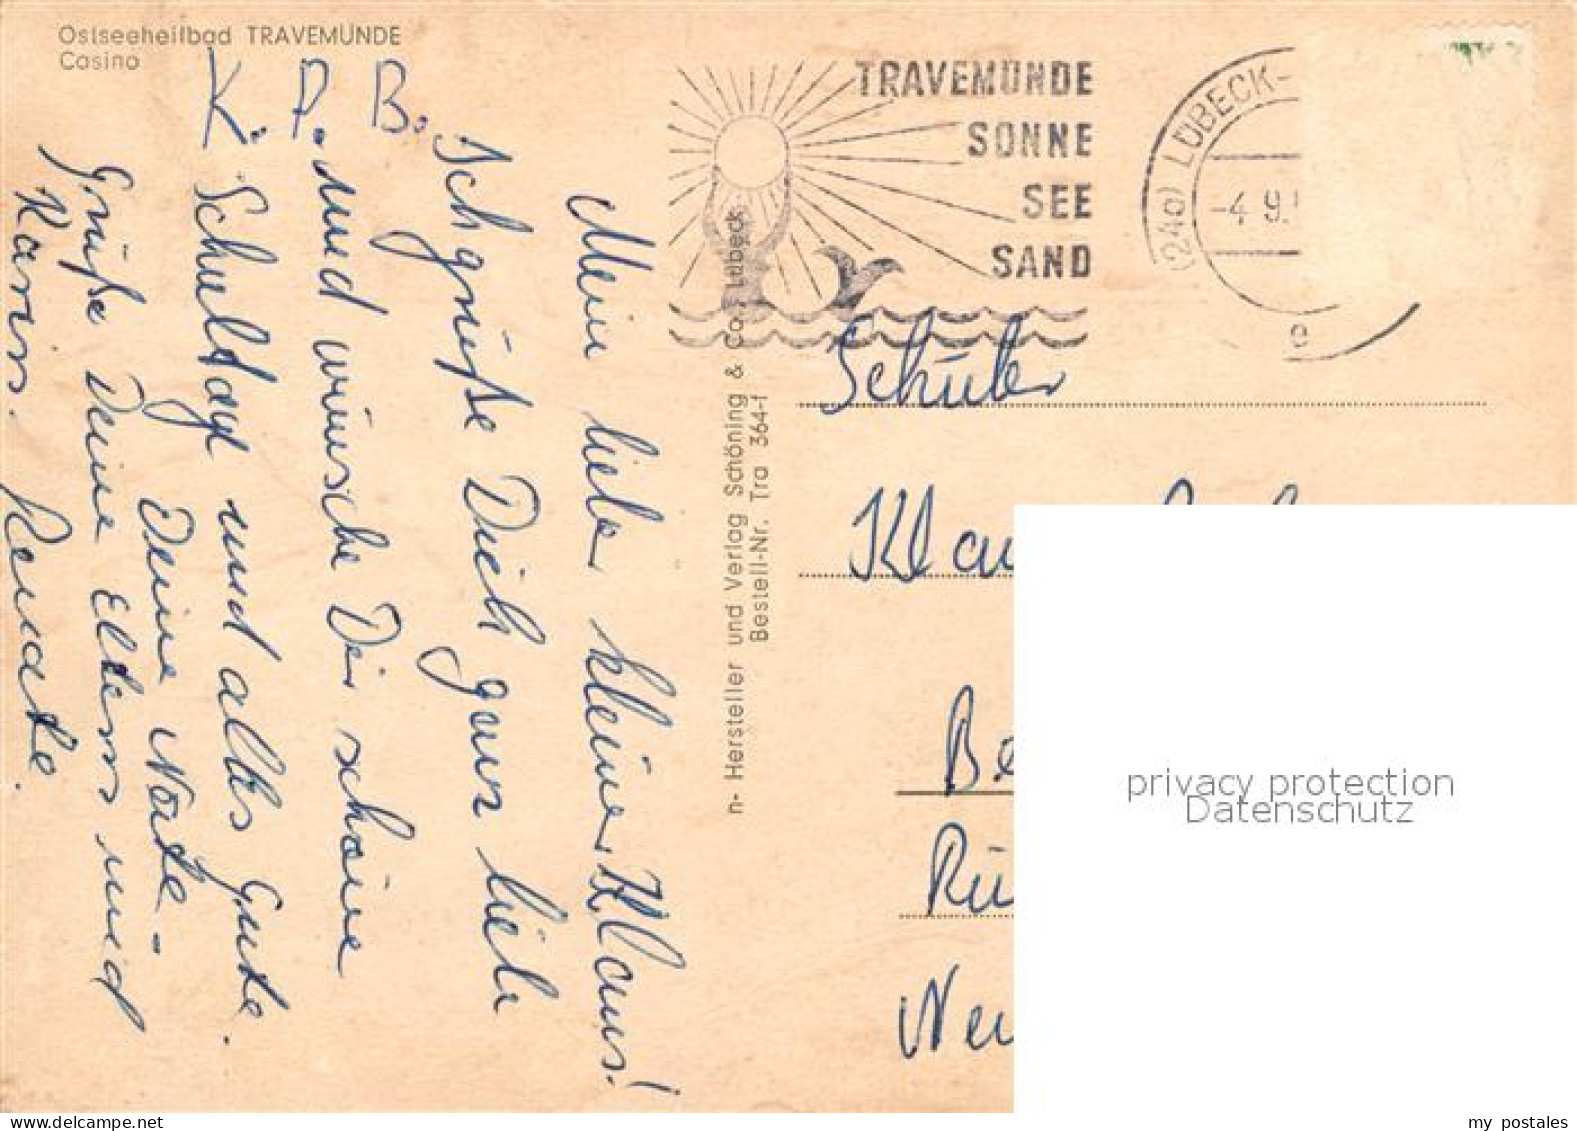 Ostseeheilbad TRAVEMÜNDE
Casino
K. P. B.
Mein lieber kleiner Klaus!
Ich grüße Dich ganz lieb
und wünsche Dir schöne
Schultage und alles Gute.
Deine
Grüße Deine Eltern und
Karin. Renate.
n- Hersteller und Verlag Schöning & Co., Lübeck
Bestell-Nr. Tra 364-1
TRAVEMÜNDE
SONNE
SEE
SAND
(24a) LÜBECK-
-4.9.
e
Schüler
Klau
Be
Rü
Neu
privacy protection
Datenschutz
my postales